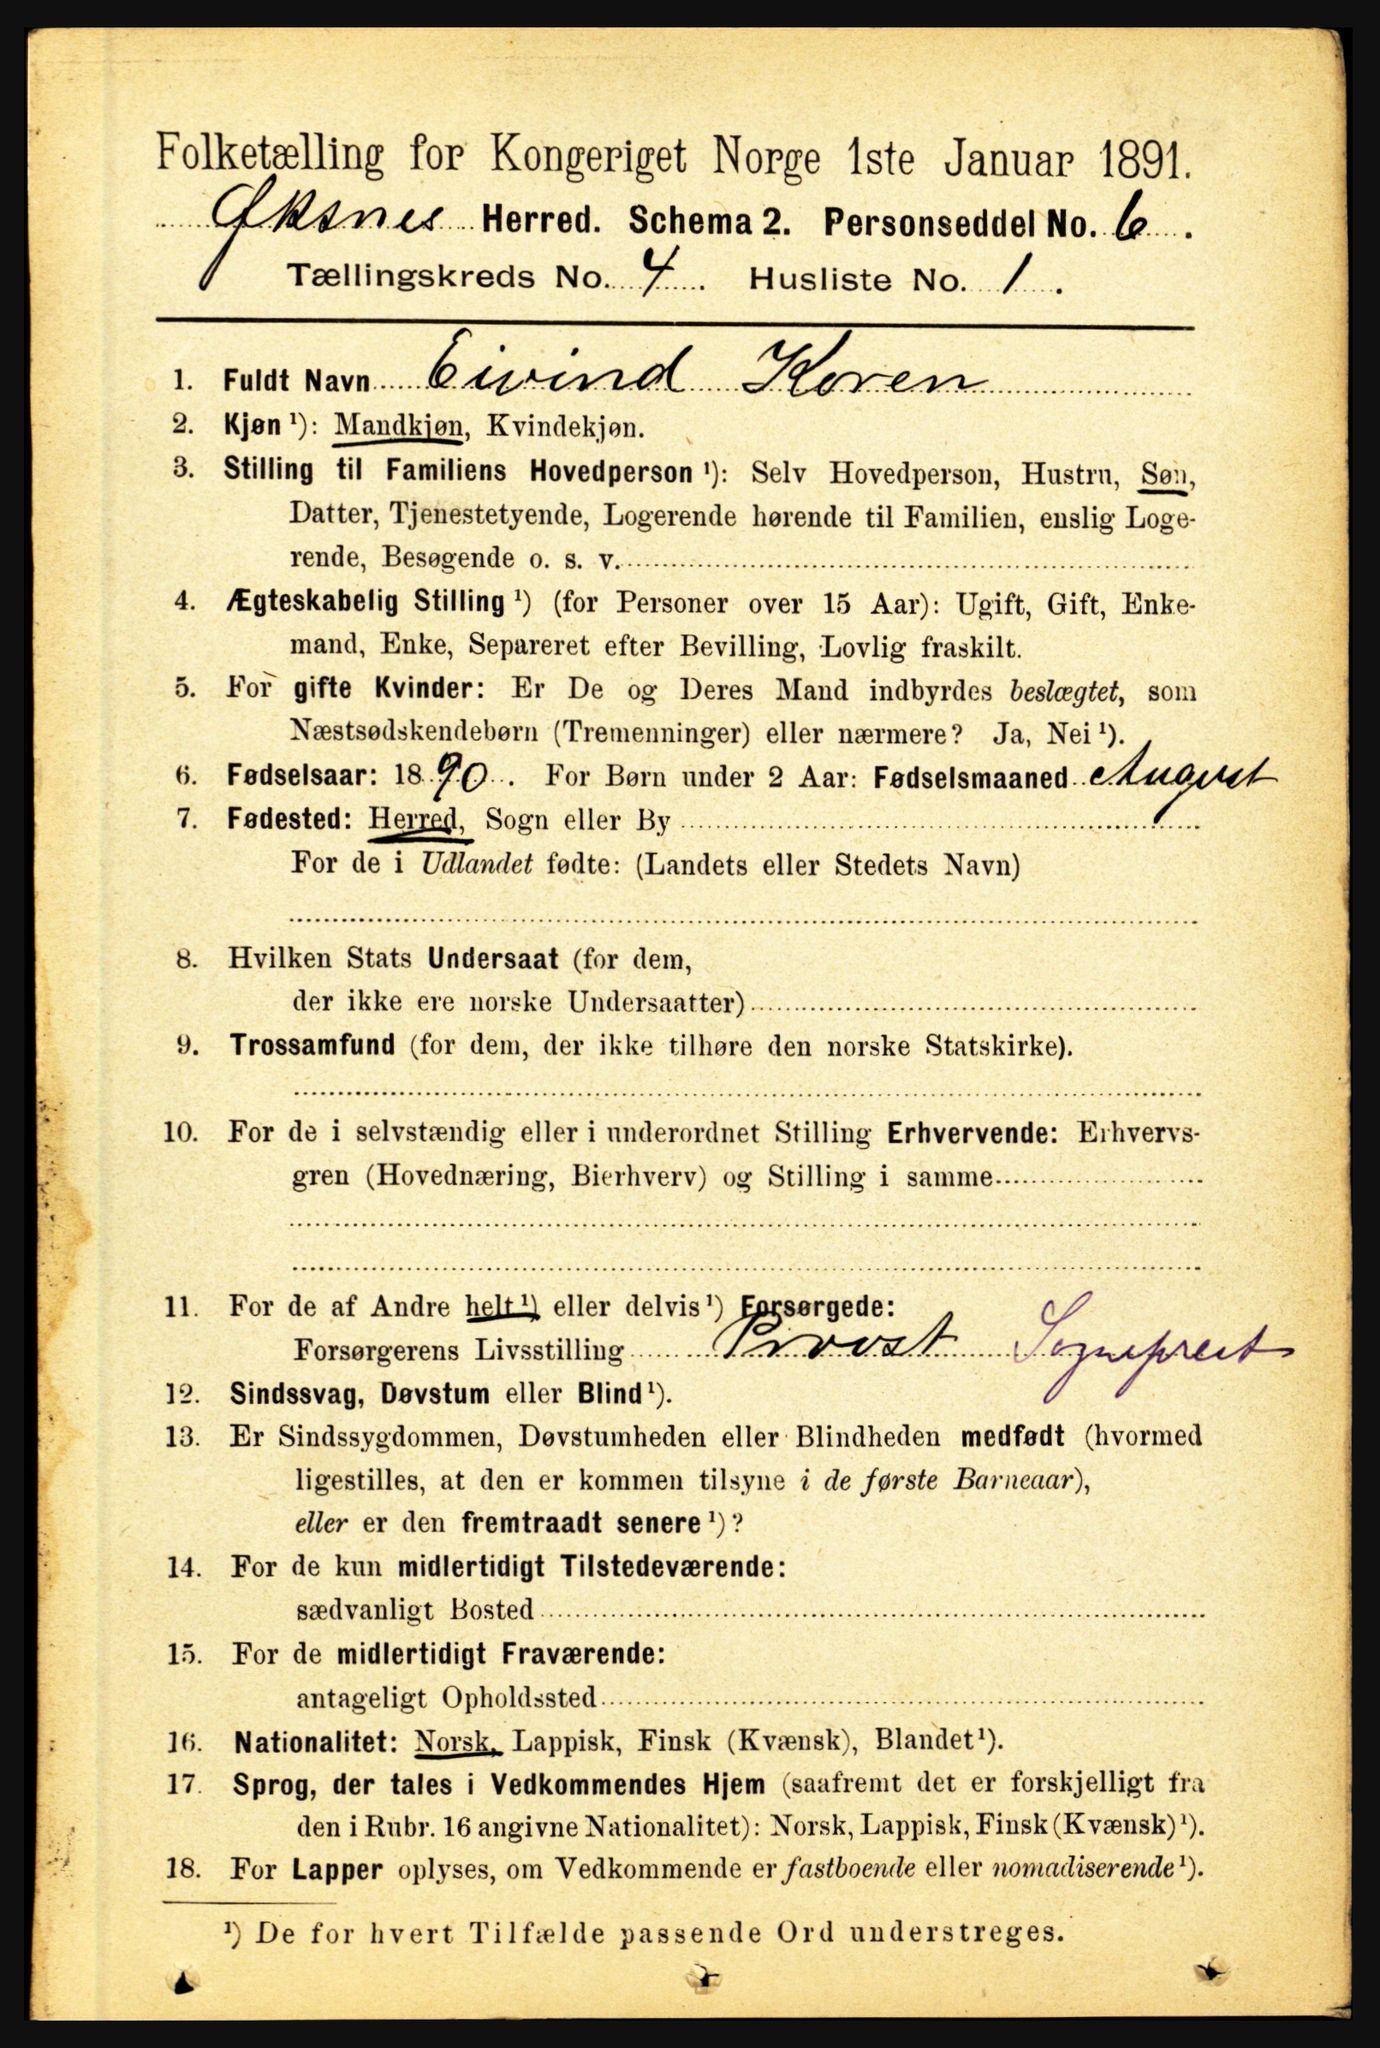 Folketælling for Kongeriget Norge 1ste Januar 1891.
Øksnes Herred. Schema 2. Personseddel No. 6.
Tællingskreds No. 4. Husliste No. 1.
1. Fuldt Navn Eivind Koren
2. Kjøn ¹): Mandkjøn, Kvindekjøn.
3. Stilling til Familiens Hovedperson ¹): Selv Hovedperson, Hustru, Søn,
Datter, Tjenestetyende, Logerende hørende til Familien, enslig Loge-
rende, Besøgende o. s. v.
4. Ægteskabelig Stilling ¹) (for Personer over 15 Aar): Ugift, Gift, Enke-
mand, Enke, Separeret efter Bevilling, Lovlig fraskilt.
5. For gifte Kvinder: Er De og Deres Mand indbyrdes beslægtet, som
Næstsødskendebørn (Tremenninger) eller nærmere? Ja, Nei ¹).
6. Fødselsaar: 1890. For Børn under 2 Aar: Fødselsmaaned August
7. Fødested: Herred, Sogn eller By
For de i Udlandet fødte: (Landets eller Stedets Navn)
8. Hvilken Stats Undersaat (for dem,
der ikke ere norske Undersaatter)
9. Trossamfund (for dem, der ikke tilhøre den norske Statskirke).
10. For de i selvstændig eller i underordnet Stilling Erhvervende: Erhvervs-
gren (Hovednæring, Bierhverv) og Stilling i samme
11. For de af Andre helt ¹) eller delvis ¹) Forsørgede:
Forsørgerens Livsstilling Provst Sogneprest
12. Sindssvag, Døvstum eller Blind ¹).
13. Er Sindssygdommen, Døvstumheden eller Blindheden medfødt (hvormed
ligestilles, at den er kommen tilsyne i de første Barneaar),
eller er den fremtraadt senere ¹)?
14. For de kun midlertidigt Tilstedeværende:
sædvanligt Bosted
15. For de midlertidigt Fraværende:
antageligt Opholdssted
16. Nationalitet: Norsk, Lappisk, Finsk (Kvænsk), Blandet ¹).
17. Sprog, der tales i Vedkommendes Hjem (saafremt det er forskjelligt fra
den i Rubr. 16 angivne Nationalitet): Norsk, Lappisk, Finsk (Kvænsk) ¹).
18. For Lapper oplyses, om Vedkommende er fastboende eller nomadiserende ¹).
¹) De for hvert Tilfælde passende Ord understreges.